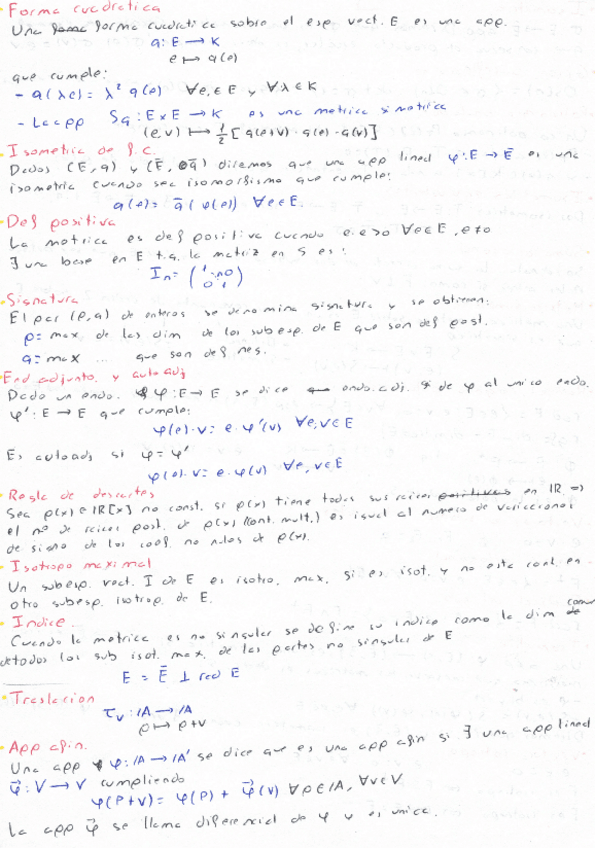 Forma cuadratica
Una forma cuadratica sobre el esp. vect. E es una app.
q: E → K
e ↦ q(e)
que cumple:
- q(λe) = λ² q(e) ∀e,∈E y ∀λ∈K
- La app Sq : E×E → K es una metrica simetrica
(e,v) ↦ 1/2 [q(e+v) - q(e) - q(v)]
Isometria de f.c.
Dados (E,q) y (Ē, q̄) diremos que una app lineal φ: E → Ē es una
isometria cuando sea isomorfismo que cumple:
q(e) = q̄(φ(e)) ∀e∈E.
Def positiva
La metrica es def positiva cuando e·e>0 ∀e∈E, e≠0
∃ una base en E t.q. la matriz en S es:
In = (1 ... 0 / 0 ... 1)
Signatura
El par (p,q) de enteros se denomina signatura y se obtienen:
p = max. de las dim de los subesp. de E que son def post.
q = max ... que son def neg.
End adjunto. y autoadj
Dado un endo. φ: E → E se dice endo. adj. de φ al unico endo.
φ': E → E que cumple:
φ(e)·v = e·φ'(v) ∀e,v∈E
Es autoadj si φ = φ'
φ(e)·v = e·φ(v) ∀e,v∈E
Regla de descartes
Sea p(x)∈IR[x] no const. si p(x) tiene todas sus raices positivas en IR ⇒
el nº de raices post. de p(x) (cont. mult.) es igual al numero de variaciones
de signo de los coef. no nulos de p(x).
Isotropo maximal
Un subesp. vect. I de E es isotro. max. si es isot. y no esta cont. en
otro subesp. isotrop. de E.
Indice.
Cuando la metrica es no singular se define su indice como la dim comun de
de todos los sub isot. max. de las partes no singular de E
E = Ē ⊥ rad E
Traslacion
τv : /A → /A
p ↦ p+v
App afin.
Una app φ: /A → /A' se dice que es una app afin si ∃ una app lineal
φ⃗: V → V cumpliendo
φ(P+v) = φ(P) + φ⃗(v) ∀p∈/A, ∀v∈V
La app φ⃗ se llama diferencial de φ y es unica.